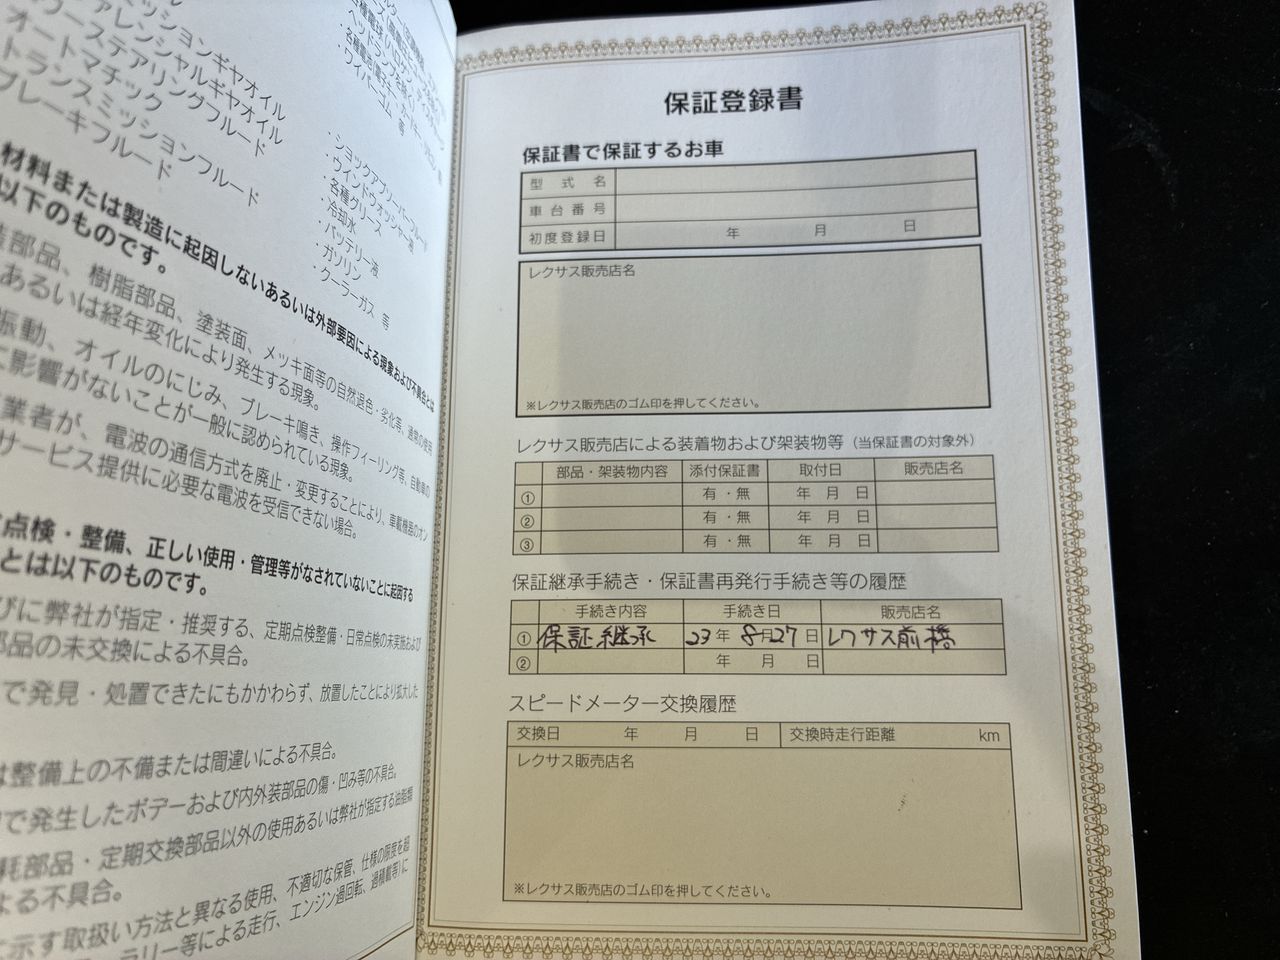 ミッションギヤオイル
ファレンシャルギヤオイル
ワーステアリングフルード
オートマチック
トランスミッションフルード
ブレーキフルード
・ワイパーゴム 等
・ショックアブソーバーフルード
・ウインドウォッシャー液
・各種グリース
・冷却水
・バッテリー液
・ガソリン
・クーラーガス 等
材料または製造に起因しないあるいは外部要因による現象および不具合とは
以下のものです。
装部品、樹脂部品、塗装面、メッキ面等の自然退色・劣化等、通常の使用
あるいは経年変化により発生する現象。
振動、オイルのにじみ、ブレーキ鳴き、操作フィーリング等、自動車の
に影響がないことが一般に認められている現象。
業者が、電波の通信方式を廃止・変更することにより、車載機器のオン
サービス提供に必要な電波を受信できない場合。
点検・整備、正しい使用・管理等がなされていないことに起因する
とは以下のものです。
びに弊社が指定・推奨する、定期点検整備・日常点検の未実施および
部品の未交換による不具合。
で発見・処置できたにもかかわらず、放置したことにより拡大した
は整備上の不備または間違いによる不具合。
で発生したボデーおよび内外装部品の傷・凹み等の不具合。
耗部品・定期交換部品以外の使用あるいは弊社が指定する油脂類
よる不具合。
に示す取扱い方法と異なる使用、不適切な保管、仕様の限度を超
ラリー等による走行、エンジン過回転、過積載等)に
保証登録書
保証書で保証するお車
型式名
車台番号
初度登録日 年 月 日
レクサス販売店名
※レクサス販売店のゴム印を押してください。
レクサス販売店による装着物および架装物等(当保証書の対象外)
部品・架装物内容 添付保証書 取付日 販売店名
① 有・無 年 月 日
② 有・無 年 月 日
③ 有・無 年 月 日
保証継承手続き・保証書再発行手続き等の履歴
手続き内容 手続き日 販売店名
① 保証継承 23年 8月27日 レクサス前橋
② 年 月 日
スピードメーター交換履歴
交換日 年 月 日 交換時走行距離 km
レクサス販売店名
※レクサス販売店のゴム印を押してください。